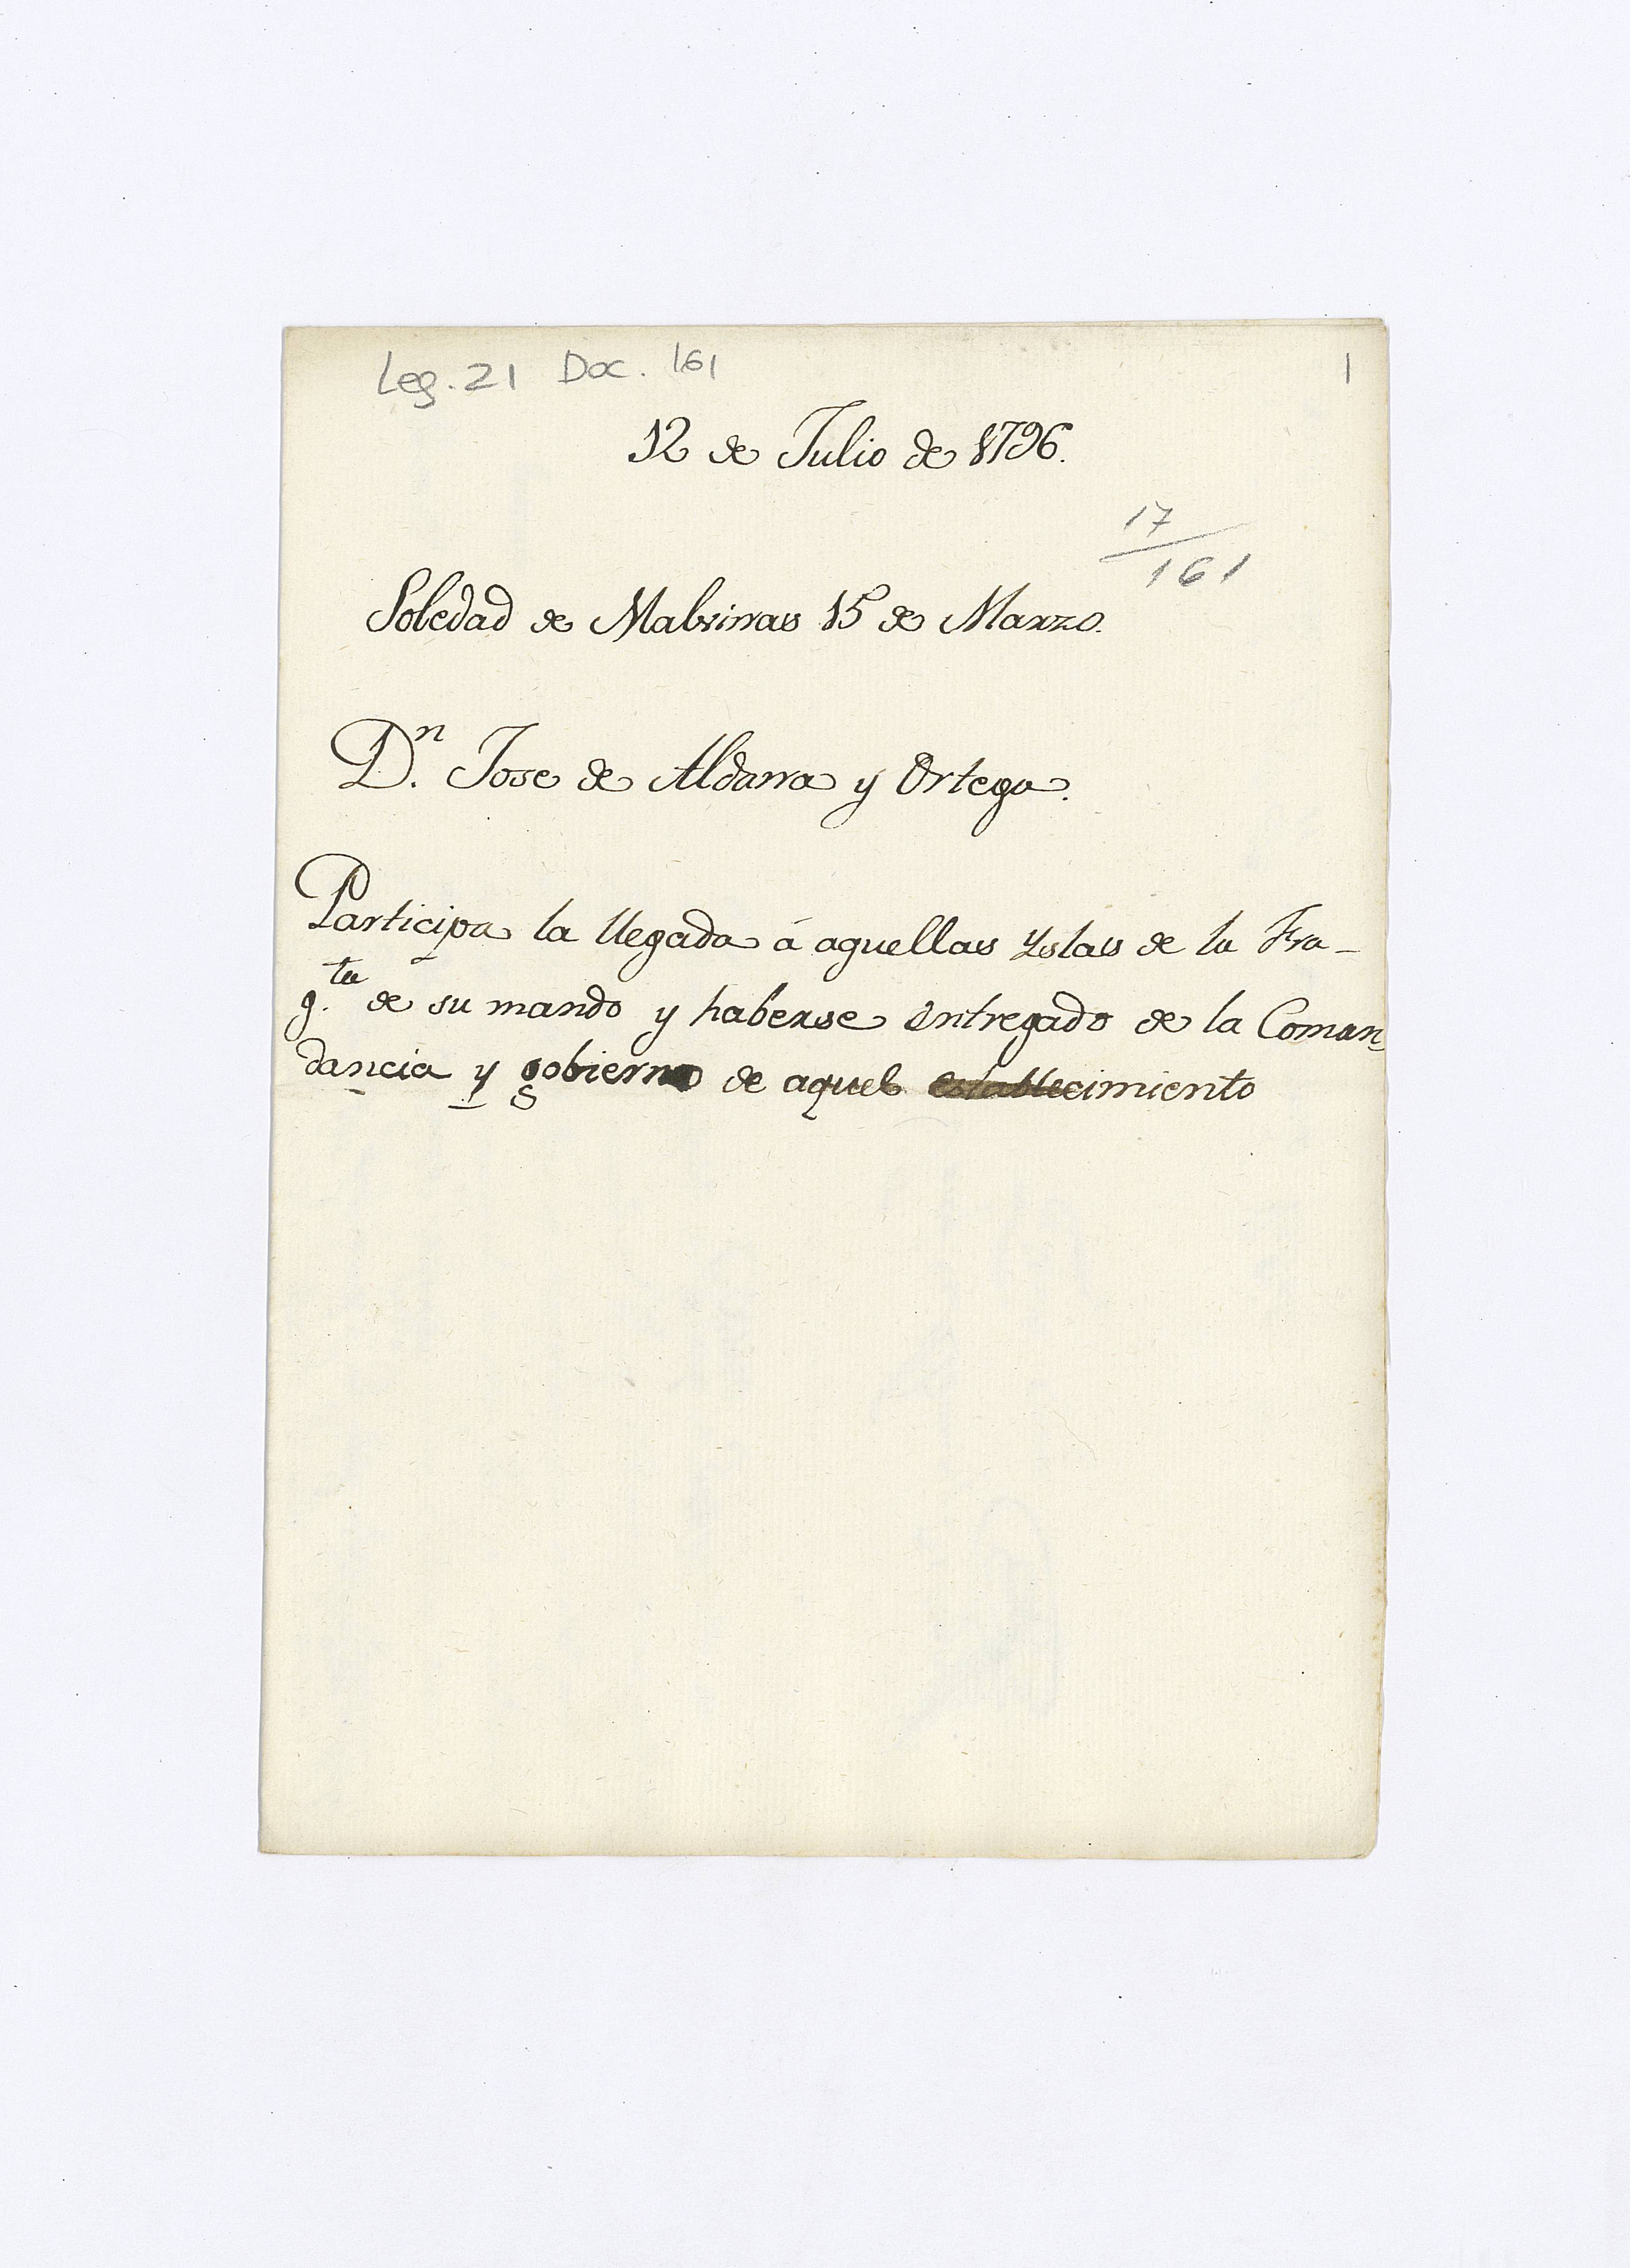 Leg. 21 Doc. 161
1
12 de Julio de 1796.
17
161
Soledad de Malvinas 15 de Marzo.
Dn. Jose de Aldana y Ortega.
Participa la llegada á aquellas Yslas de la Fra-
g.ta de su mando y haberse entregado de la Coman-
dancia y gobierno de aquel establecimiento